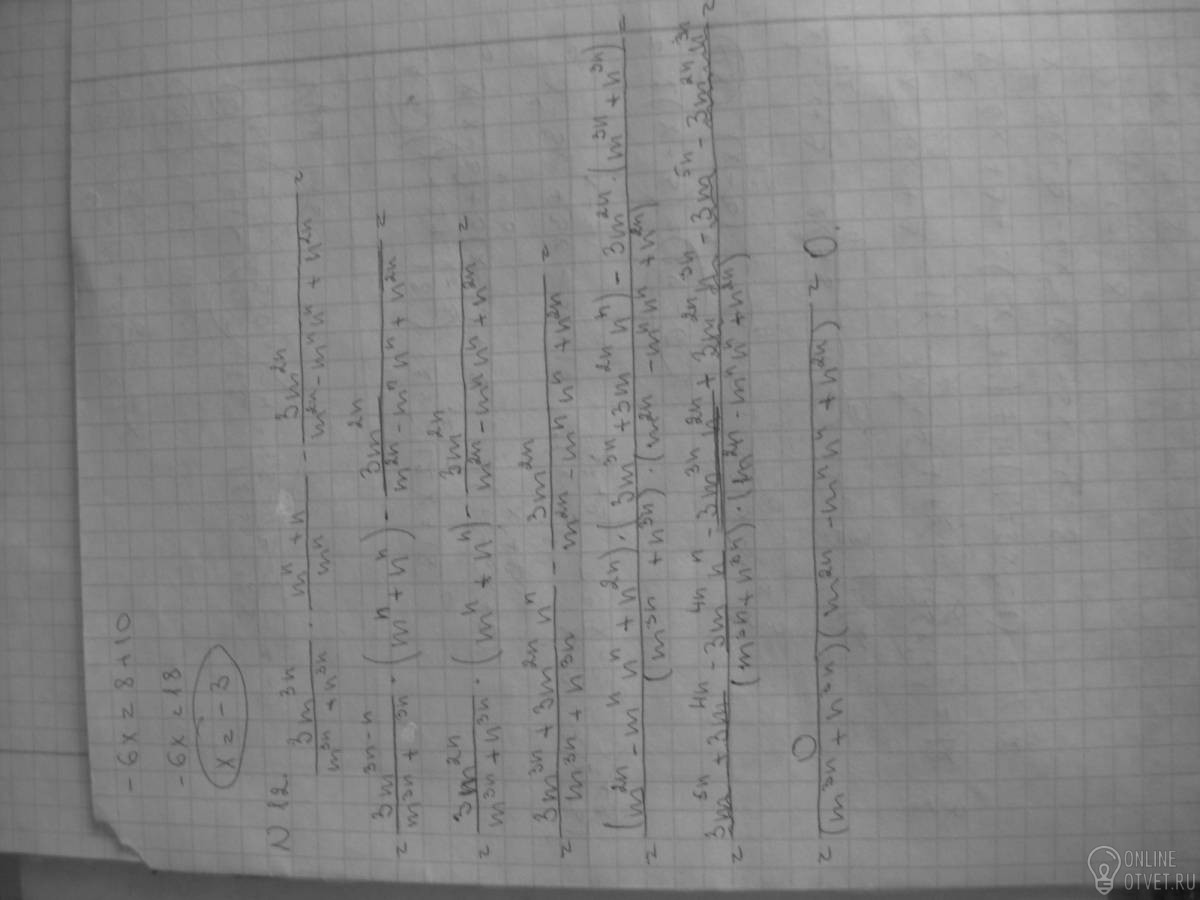 -6x = 8+10
-6x = 18
x = -3
N 12
3m^{3n}/(m^{3n} + n^{3n}) · (m^n + n^n)/m^n - 3m^{2n}/(m^{2n} - m^n n^n + n^{2n}) =
= 3m^{3n-n}/(m^{3n} + n^{3n}) · (m^n + n^n) - 3m^{2n}/(m^{2n} - m^n n^n + n^{2n}) =
= 3m^{2n}/(m^{3n} + n^{3n}) · (m^n + n^n) - 3m^{2n}/(m^{2n} - m^n n^n + n^{2n}) =
= (3m^{3n} + 3m^{2n} n^n)/(m^{3n} + n^{3n}) - 3m^{2n}/(m^{2n} - m^n n^n + n^{2n}) =
= ((m^{2n} - m^n n^n + n^{2n}) · (3m^{3n} + 3m^{2n} n^n) - 3m^{2n} · (m^{3n} + n^{3n}))/((m^{3n} + n^{3n}) · (m^{2n} - m^n n^n + n^{2n})) =
= (3m^{5n} + 3m^{4n} - 3m^{4n} n^n - 3m^{3n} n^{2n} + 3m^{2n} n^{3n} - 3m^{5n} - 3m^{2n} n^{3n})/((m^{3n} + n^{3n}) · (m^{2n} - m^n n^n + n^{2n})) =
= 0/((m^{3n} + n^{3n})(m^{2n} - m^n n^n + n^{2n})) = 0.
ONLINE
OTVET.RU